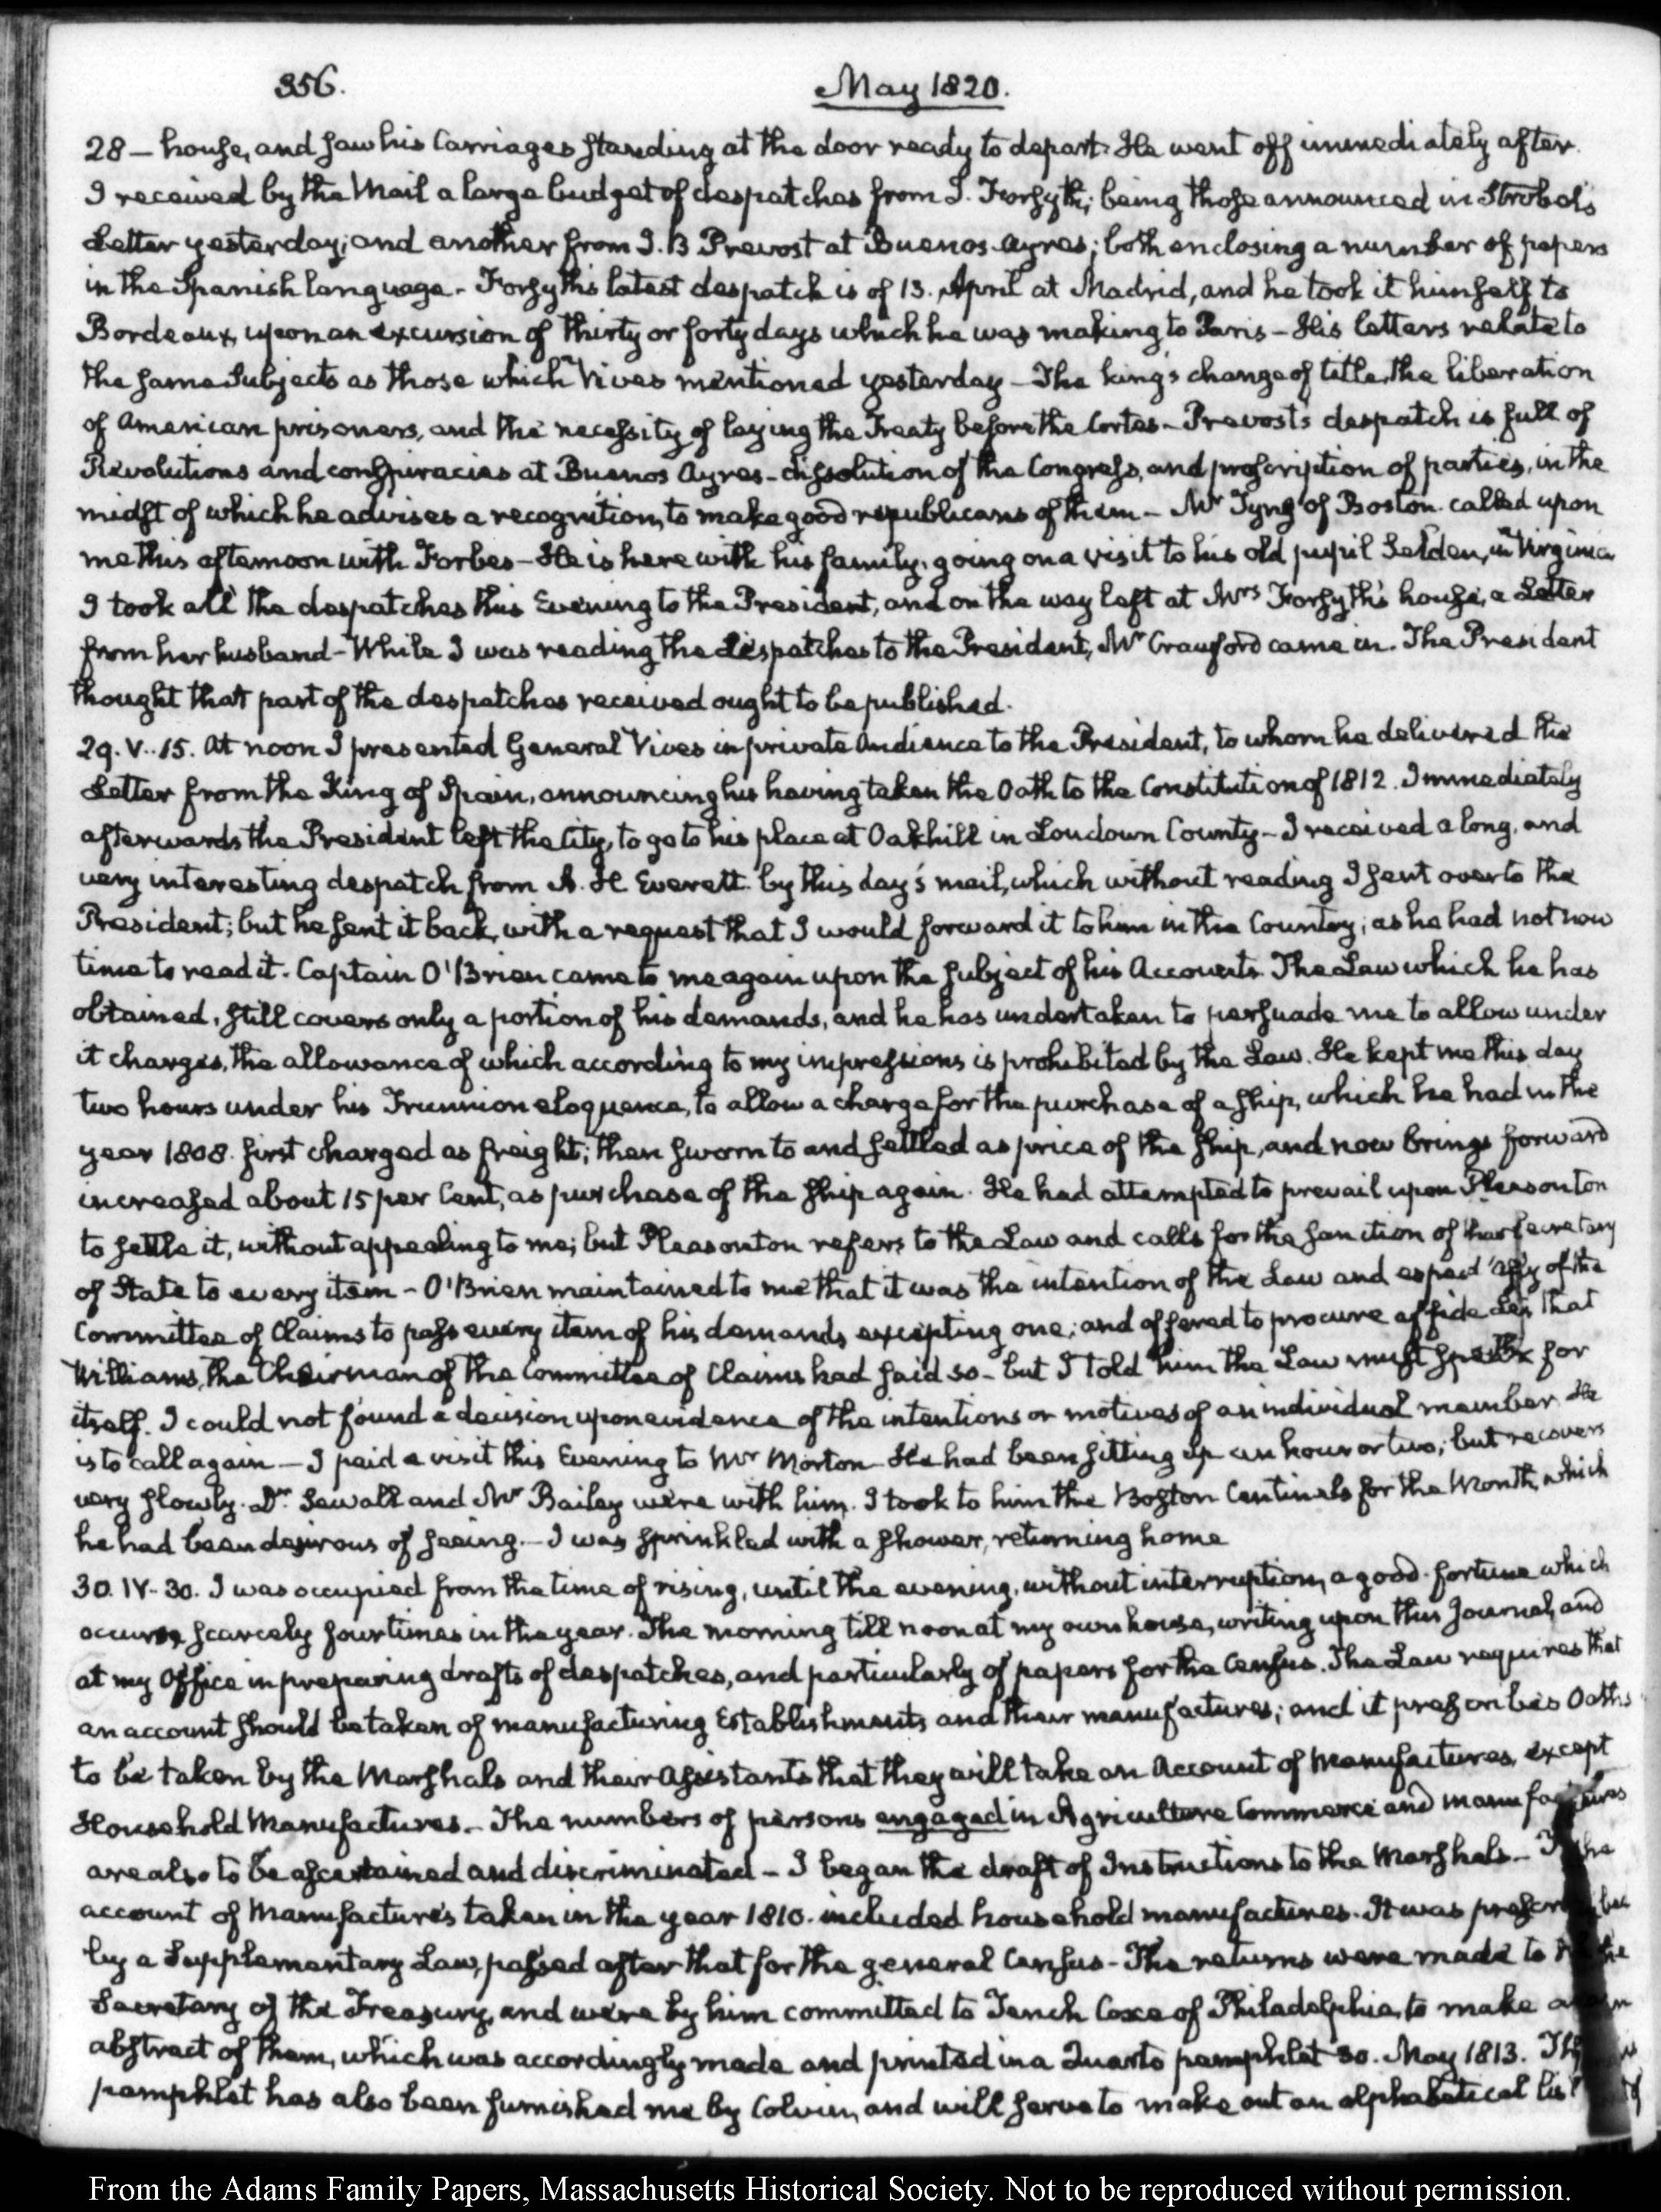 356.
May 1820.
28 — house, and saw his Carriages standing at the door ready to depart. He went off immediately after.
I received by the Mail a large budget of despatches from J. Forsyth; being those announced in Strobel's
Letter yesterday; and another from J. B Prevost at Buenos-Ayres; both enclosing a number of papers
in the Spanish language. Forsyth's latest despatch is of 13. April at Madrid, and he took it himself to
Bordeaux, upon an excursion of thirty or forty days which he was making to Paris — His letters relate to
the same Subjects as those which Vives mentioned yesterday — The king's change of title, the liberation
of American prisoners, and the necessity of laying the Treaty before the Cortes — Prevost's despatch is full of
Revolutions and conspiracies at Buenos Ayres — dissolution of the Congress, and proscription of parties, in the
midst of which he advises a recognition, to make good republicans of them — Mr Tyng of Boston called upon
me this afternoon with Forbes — He is here with his family, going on a visit to his old pupil Selden, in Virginia
I took all the despatches this Evening to the President, and on the way left at Mrs Forsyth's house, a Letter
from her husband — While I was reading the despatches to the President, Mr Crawford came in. The President
thought that part of the despatches received ought to be published.
29. V. 15. At noon I presented General Vives in private Audience to the President, to whom he delivered the
Letter from the King of Spain, announcing his having taken the Oath to the Constitution of 1812. Immediately
afterwards the President left the City, to go to his place at Oakhill in Loudoun County — I received a long, and
very interesting despatch from A. H. Everett by this day's mail, which without reading I sent over to the
President; but he sent it back, with a request that I would forward it to him in the Country; as he had not now
time to read it. Captain O'Brien came to me again upon the subject of his Accounts. The Law which he has
obtained, still covers only a portion of his demands, and he has undertaken to persuade me to allow under
it charges, the allowance of which according to my impressions is prohibited by the Law. He kept me this day
two hours under his Trunnion eloquence, to allow a charge for the purchase of a ship, which he had in the
year 1808. first charged as freight; then sworn to and settled as price of the ship, and now brings forward
increased about 15 per Cent, as purchase of the ship again. He had attempted to prevail upon Pleasonton
to settle it, without appealing to me; but Pleasonton refers to the Law and calls for the sanction of the Secretary
of State to every item — O'Brien maintained to me that it was the intention of the Law and especially of the
Committee of Claims to pass every item of his demands excepting one; and offered to procure affidavits that
Williams, the Chairman of the Committee of Claims had said so — but I told him the Law must speak for
itself. I could not found a decision upon evidence of the intentions or motives of an individual member. He
is to call again — I paid a visit this Evening to Mr Morton He had been sitting up an hour or two; but recovers
very slowly. Dr. Sewall and Mr Bailey were with him. I took to him the Boston Centinels for the Month, which
he had been desirous of seeing. — I was sprinkled with a shower, returning home
30. IV. 30. I was occupied from the time of rising, until the evening, without interruption, a good fortune which
occurs scarcely four times in the year. The morning till noon at my own house, writing upon this Journal, and
at my Office in preparing drafts of despatches, and particularly of papers for the Census. The Law requires that
an account should be taken of manufacturing Establishments and their manufactures; and it prescribes Oaths
to be taken by the Marshals and their Assistants that they will take an Account of Manufactures, except
Household Manufactures. — The numbers of persons engaged in Agriculture Commerce and manufactures
are also to be ascertained and discriminated — I began the draft of Instructions to the Marshals. — The
account of Manufactures taken in the year 1810. included household manufactures. It was prescribed
by a Supplementary Law, passed after that for the general Census — The returns were made to the
Secretary of the Treasury, and were by him committed to Tench Coxe of Philadelphia, to make an
abstract of them, which was accordingly made and printed in a Quarto pamphlet 30. May 1813. This
pamphlet has also been furnished me by Colvin, and will serve to make out an alphabetical list of
From the Adams Family Papers, Massachusetts Historical Society. Not to be reproduced without permission.